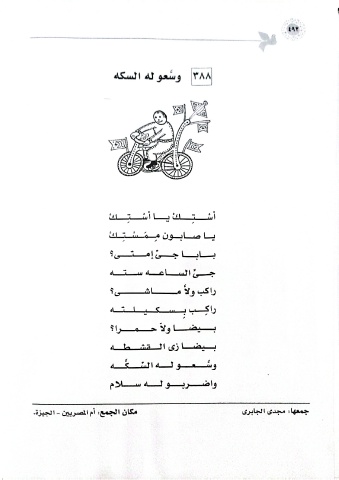 ٤٩٢
٣٨٨ وسَّعو له السكه
أسْتِك يا أسْتِك
يا صابون ممَسْتِك
بابا جىّ إمتى؟
جىّ الساعه سته
راكب ولاَّ ماشى؟
راكِب بِسكينِته
بيضا ولاَّ حمرا؟
بيضا زى القشطه
وسَّعو له السِّكَّه
واضربو له سلام
جمعها: مجدى الجابرى
مكان الجمع: أم المصريين - الجيزة.